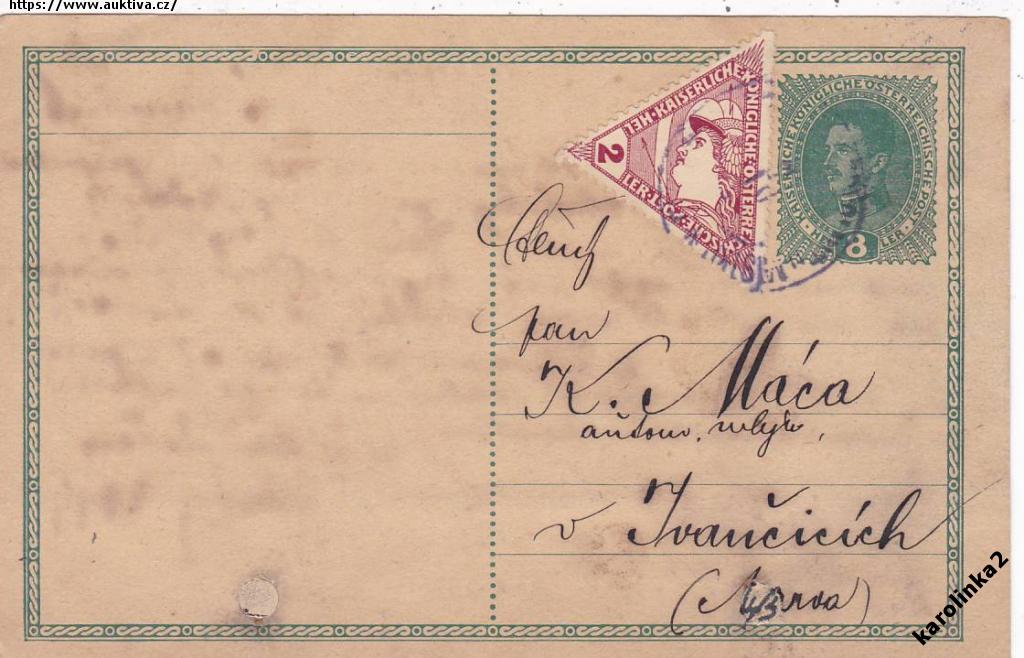 https://www.auktiva.cz/
KAISERLICHE KÖNIGLICHE ÖSTERREICHISCHE POST
8
HEL·KAISERLICHE KÖNIGLICHE ÖSTERREICHISCHE POST·LER
2
pan
K. Máca
v Ivančicích
(Morava)
karolinka2